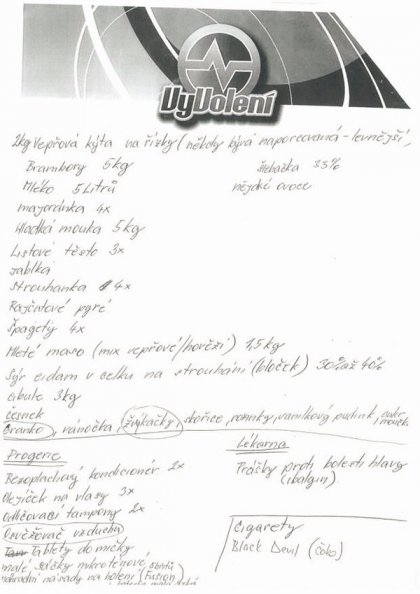 VyVolení
2kg Vepřová kýta na řízky (někdy bývá naporcovaná - levnější)
Brambory 5kg
šlehačka 33%
Mléko 5 Litrů
nějaké ovoce
majoránka 4x
Hladká mouka 5kg
Listové těsto 3x
jablka
strouhanka 4x
Rajčatové pyré
Špagety 4x
Mleté maso (mix vepřové/hovězí) 1,5kg
Sýr eidam v celku na strouhání (bloček) 30% až 40%
cibule 3kg
česnek
Granko, vánočka, žvýkačky, skořice, rozinky, vanilkový pudink, cukr
Drogerie
Lékárna
Bezoplachový kondicionér 2x
Prášky proti bolesti hlavy
(ibalgin)
Olejíček na vlasy 3x
Odličovací tampony 2x
Osvěžovač vzduchu
Cigarety
tablety do myčky
Black Devil (čoko)
malé sáčky mikrotenové
náhradní násady na holení (Fusion)